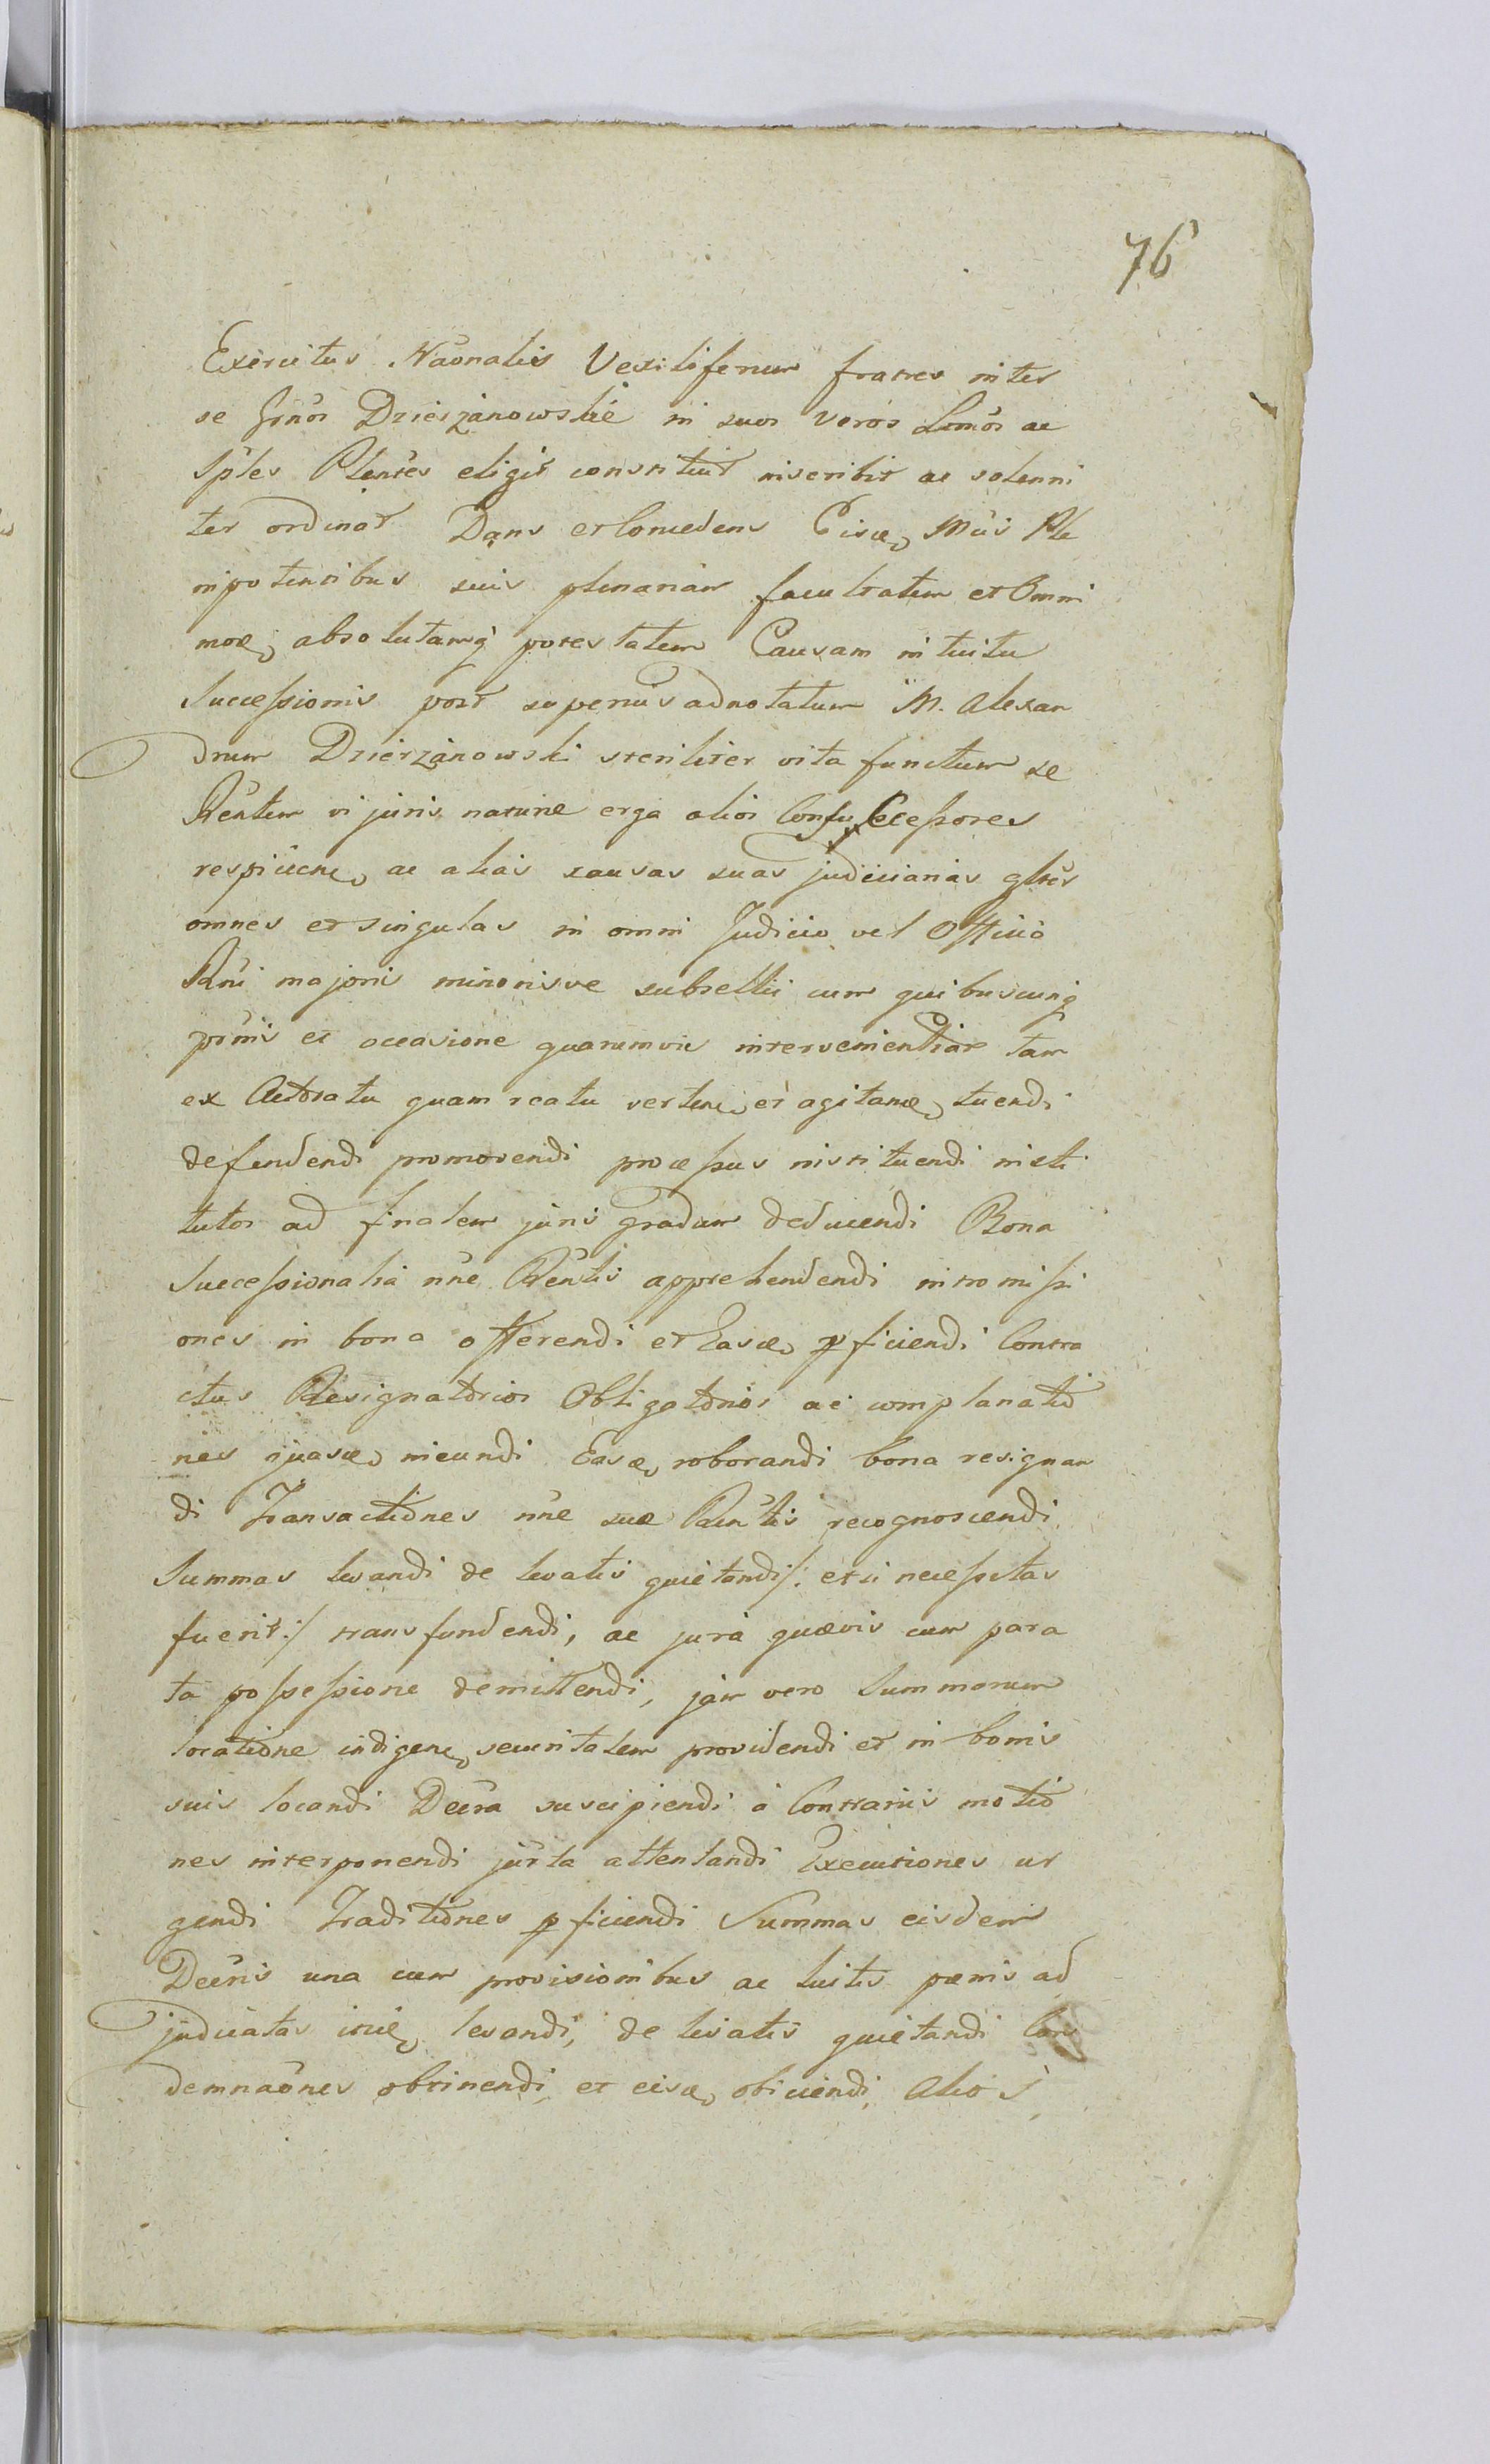 76
Exercitus Náonalis Vexiliferum fratres inter
se Gnõs Dzierzanowskie in suos veros Lẽmos ac
Sples Plentes eligit constituit inscribit ac solenni
ter ordinat Dans et Concedens Eisdem Mcis Ple
nipotentibus suis plenariam facultatem et Omni
modã absolutamq potestatem Causam intuitu
Successionis post superius adnotatum M. Alexan
drum Dzierzanowski steriliter vita functum se
Rẽntem vi juris naturæ erga alios Consuccessores
respicien ac alias causas suas judiciarias glẽs
omnes et singulas in omni Judicio vel Officio
majoris minorisve subsellii cum quibuscunq
prñis et occasione quarumvis intervenientiar tam
ex Actoratu quam reatu verten et agitand tuendi
defendendi promovendi processus instituendi insti
tutos ad finalem juris gradum deducendi Bona
Successionalia nñe Rẽntis apprehendendi intromissi
ones in bona offerendi et Easd pficiendi Contra
ctus Resignatorios Obligatorios ac complanatio
nes quascunq ineundi Easd roborandi bona resignan
di Transactiones nñe suæ Rẽntis recognoscendi
Summas levandi de levatis quietandi /: et si necessitas
fuerit :/ transfundendi, ac jura quævis cum para
ta possessione demittendi, jam vero Summarum
locatione indigen securitatem providendi et in bonis
suis locandi Decra suscipiendi a Contrariis motio
nes interponendi jurta attentandi Executiones ur
gendi Traditiones pficiendi Summas eisdem
Decris una cum provisionibus ac luitis pænis ad
judicatas levandi, de levatis quietandi Con
demnaõnes obtinendi et eisd obiiciendi, Alios